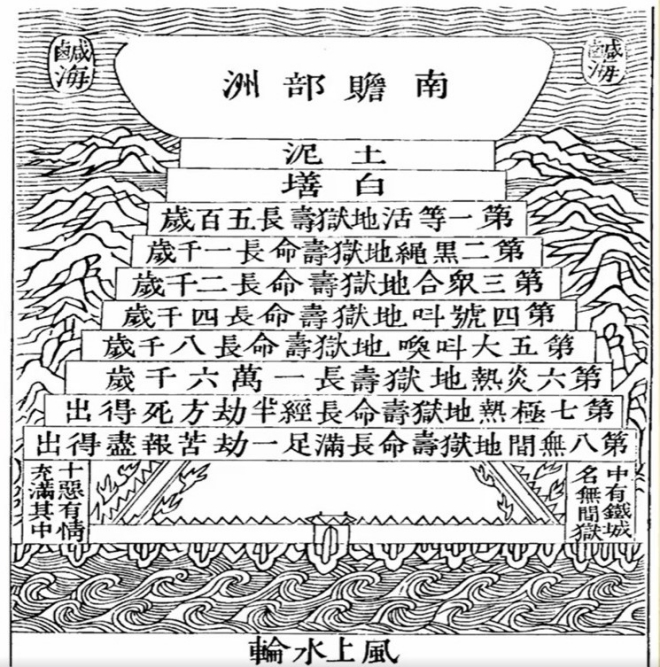 鹹海
鹹海
南贍部洲
土泥
白墡
第一等活地獄壽長五百歲
第二黑繩地獄壽命長一千歲
第三衆合地獄壽命長二千歲
第四號呌地獄壽命長四千歲
第五大呌喚地獄壽命長八千歲
第六炎熱地獄壽長一萬六千歲
第七極熱地獄壽命長經半劫方死得出
第八無間地獄壽命長滿足一劫苦報盡得出
中有鐵城
名無間獄
十惡有情
充滿其中
風上水輪